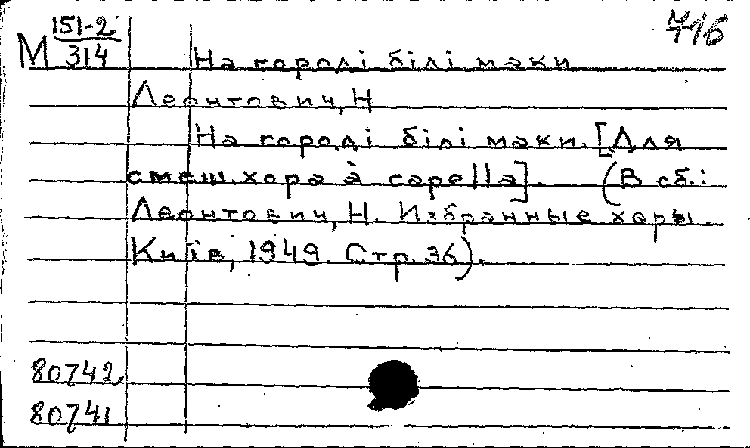 716
М 151-2/314
На городі білі маки
Леонтович, Н
На городі білі маки. [Для
смеш. хора à capella]. (В сб.:
Леонтович, Н. Избранные хоры.
Київ, 1949. Стр. 36).
80742
80741